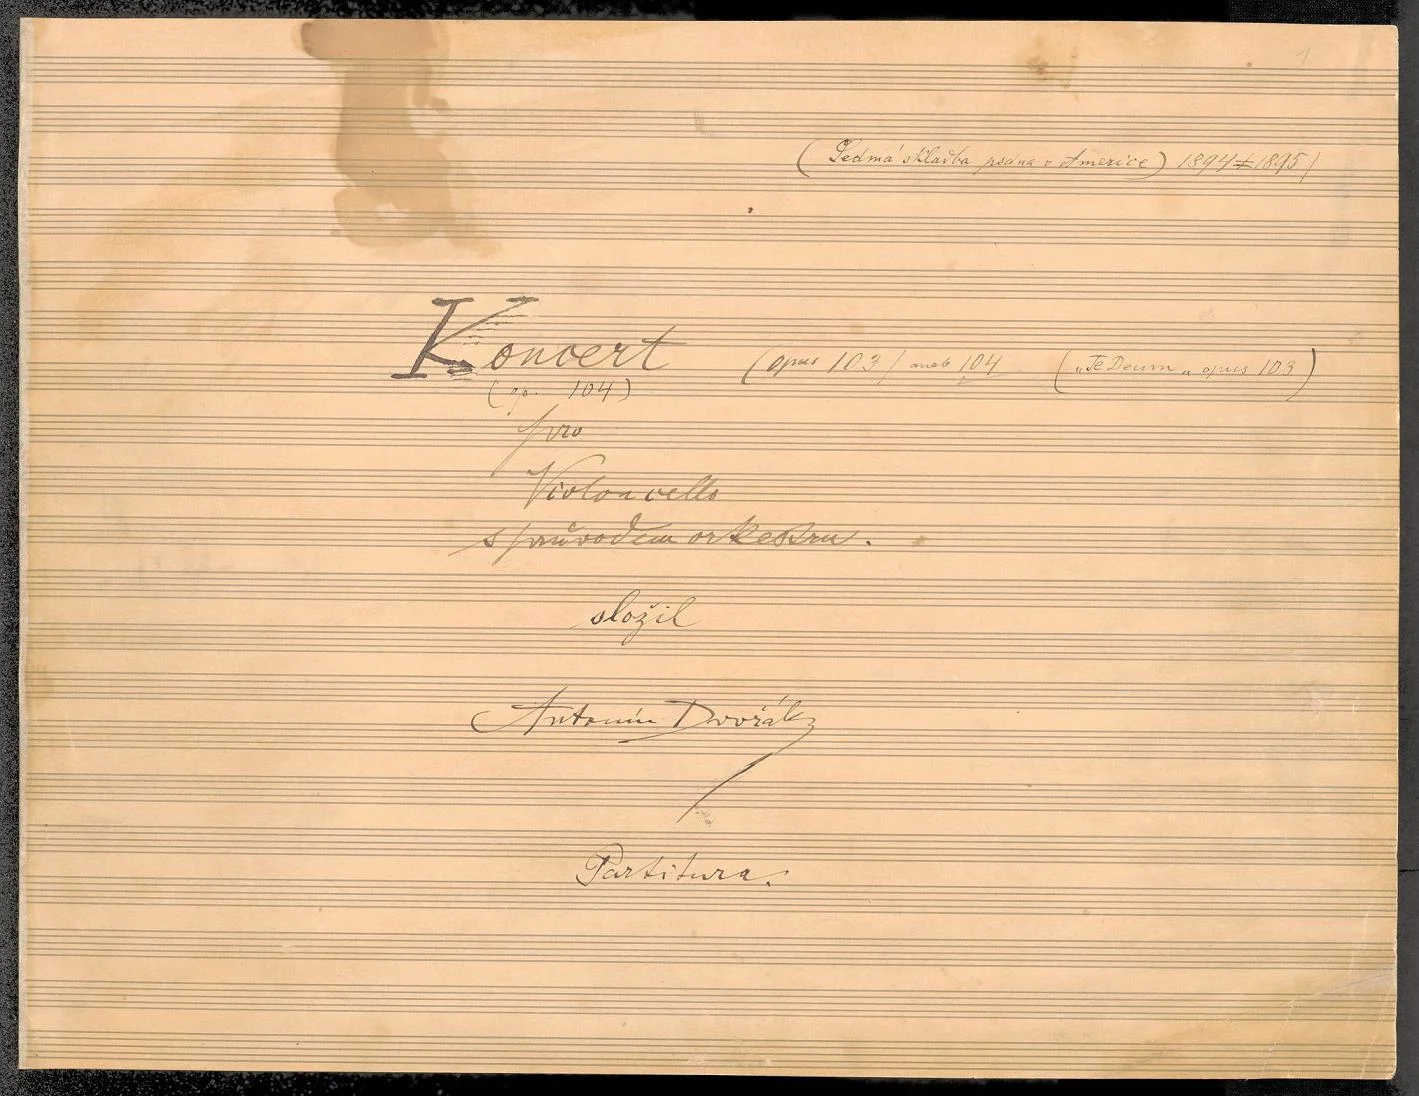 1
(Sedmá skladba psána v Americe) 1894 ≠ 1895)
Koncert (opus 103) aneb 104 („Te Deum„ opus 103)
(op. 104)
pro
Violoncello
s průvodem orkestru.
složil
Antonín Dvořák
Partitura.